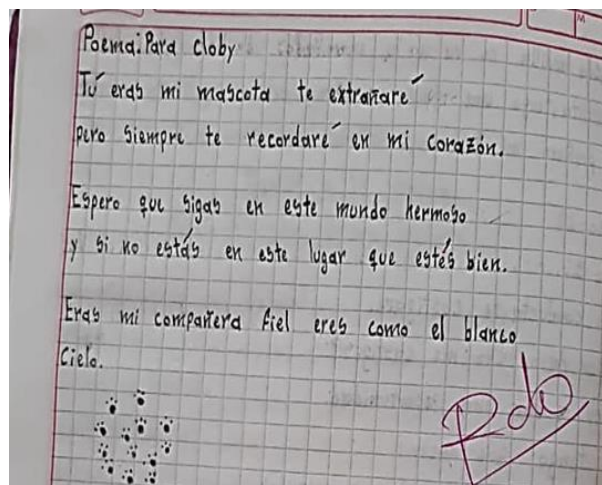 Poema: Para cloby
Tú eras mi mascota te extrañaré
pero siempre te recordaré en mi corazón.
Espero que sigas en este mundo hermoso
y si no estás en este lugar que estés bien.
Eras mi compañera fiel eres como el blanco
cielo.